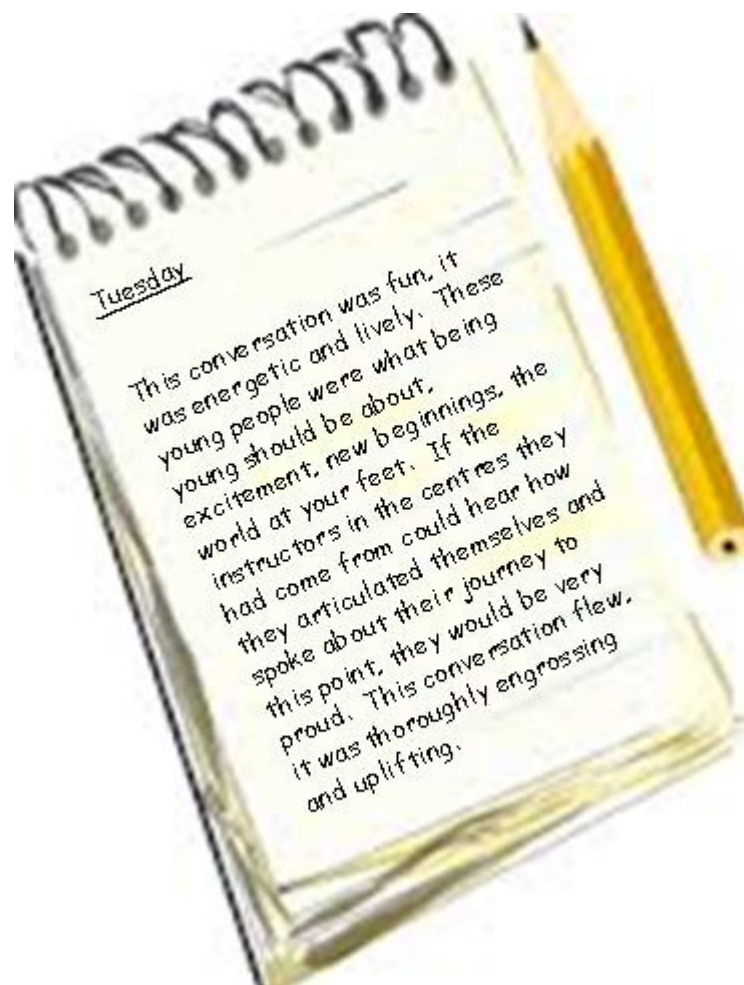 Tuesday
This conversation was fun, it
was energetic and lively. These
young people were what being
young should be about,
excitement, new beginnings, the
world at your feet. If the
instructors in the centres they
had come from could hear how
they articulated themselves and
spoke about their journey to
this point, they would be very
proud. This conversation flew,
it was thoroughly engrossing
and uplifting.